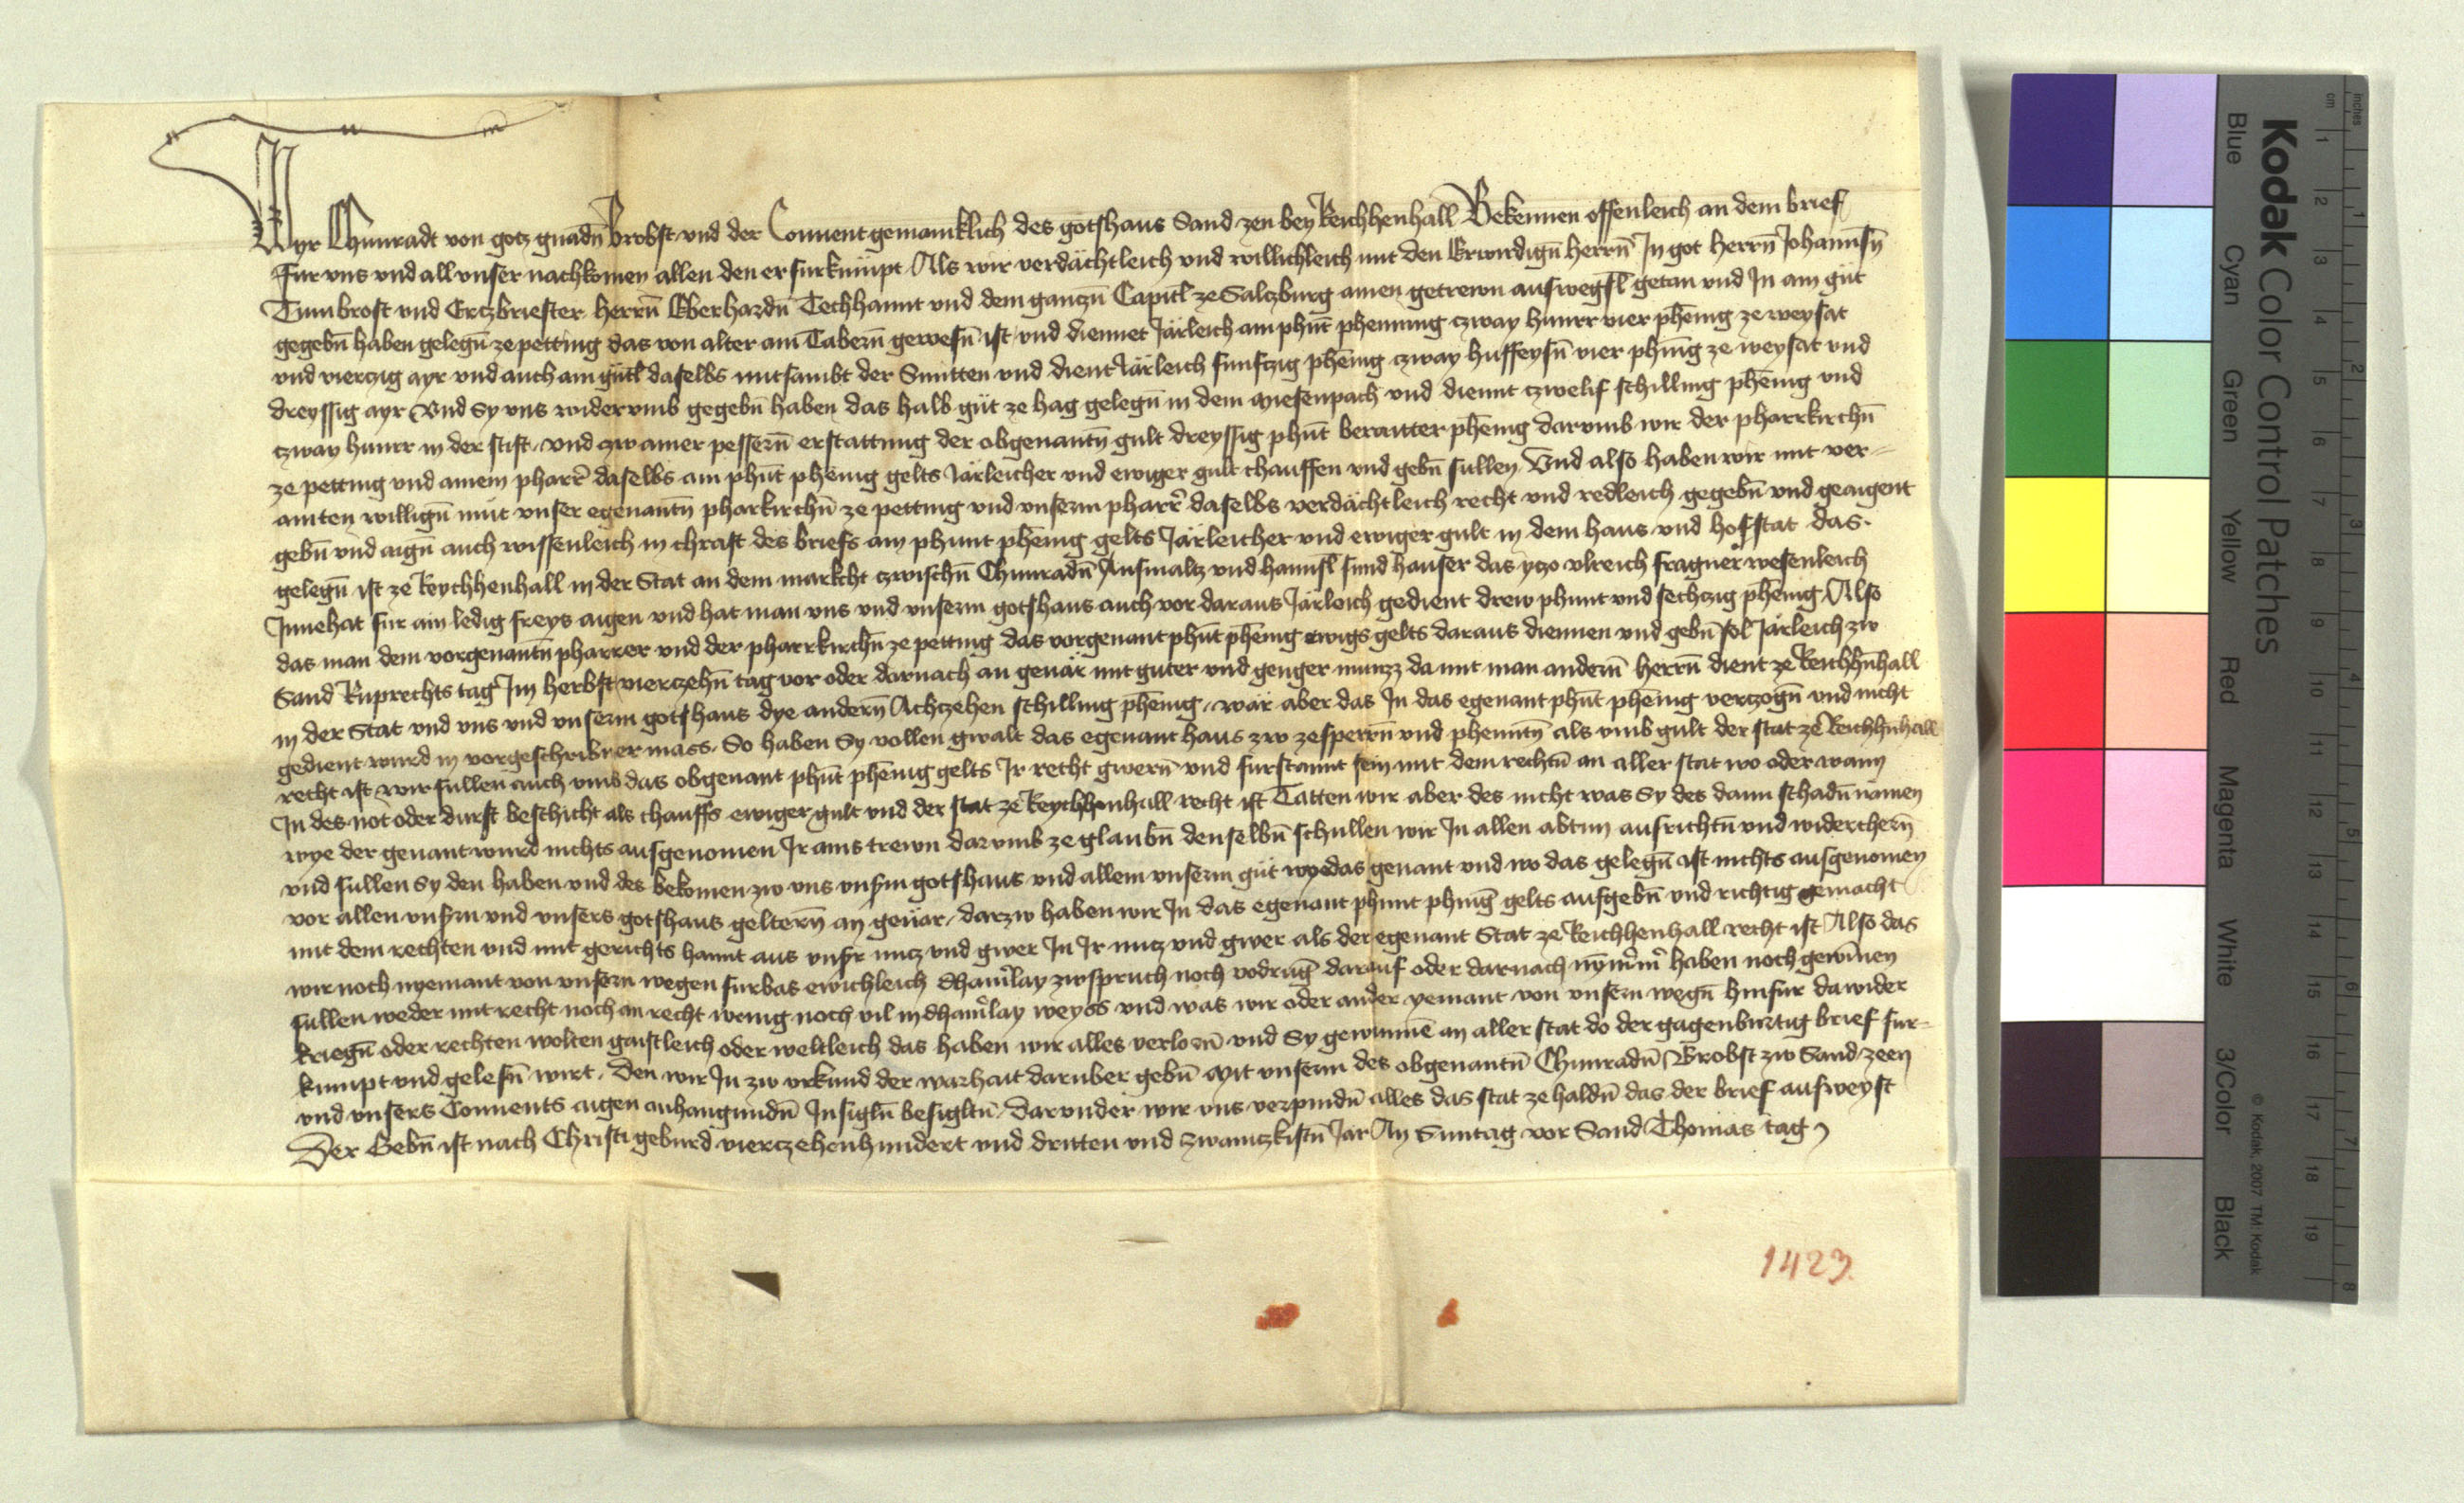 Wyr Chunradt von gotz gnadn̄ Brobst vnd der Conuent gemainklich des gotshaus Sand zen bey Reichhenhall Bekennen offenleich an dem brief
Fur vns vnd all vnser nachkomen allen den er furkumpt Als wir verdächtleich vnd willichleich mit den Erwirdign̄ herrn̄ In got herrn̄ Johannsn̄
Tumbrost vnd Ertzbriester herrn̄ Eberhardn̄ Techhannt vnd dem ganczn̄ Capitl ze Salczburg ainen getrewn auswegsl getan vnd In ain gůt
gegebn̄ haben gelegn̄ ze petting das von alter ain Tabern̄ gewesn̄ ist vnd diennet Järleich ain phūt phenning czway hunrr vier phēnig ze weysat
vnd vierczig ayr vnd auch ain gůtl daselbs mitsambt der Smitten vnd dient Järleich funfczig phēnig czway huffeysn̄ vier phnīg ze weysat vnd
dreyssig ayr Vnd Sy vns widerumb gegebn̄ haben das halb gůt ze hag gelegn̄ in dem Miesenpach vnd diennt czwelif schilling phēnig vnd
czway hunrr in der stift vnd czw ainer pessern̄ erstattung der obgenantn̄ gult dreyssig phūt beraitter phēnig darumb wir der pharrkirchn̄
ze petting vnd ainem pharr̄ daselbs ain phūt phēnig gelts Järleicher vnd ewiger gult chauffen vnd gebn̄ sullen Vnd also haben wir mit ver=
ainten willign̄ můt vnser egenantn̄ pharkirchn̄ ze petting vnd vnserm pharr̄ daselbs verdächtleich recht vnd redleich gegebn̄ vnd geaigent
gebn̄ vnd aign̄ auch wissenleich in chraft des briefs ain phunt phēnig gelts Järleicher vnd ewiger gult in dem haus vnd hofstat das
gelegn̄ ist ze Reychhenhall in der Stat an dem markcht czwischn̄ Chunradn̄ Ausmaltz vnd hannsl sund hauser das yczo vlreich fragner wesenleich
Innehat fur ain ledig freys aigen vnd hat man vns vnd vnserm gotshaus auch vor daraus Järleich gedient drew phunt vnd sechczig phēnig Also
das man dem vorgenantn̄ pharrer vnd der pharrkirchn̄ ze petting das vorgenant phūt phēnig ewigs gelts daraus diennen vnd gebn̄ sol Järleich zw
Sand Ruprechts tag Im herbst vierczehn̄ tag vor oder darnach an geuär mit guter vnd genger munzz da mit man andern̄ herrn̄ dient ze Reichhn̄hall
in der Stat vnd vns vnd vnserm gotshaus dye andern̄ Achczehen schilling phēnig, wär aber das In das egenant phūt phēnig verczogn̄ vnd nicht
gedient wurd in vorgeschribner mass. So haben Sy vollen gwalt das egenant haus zw zesperrn̄ vnd phenntn̄ als vmb gult der stat ze Reichhn̄hall
recht ist wir sullen auch vmb das obgenant phūt phēnig gelts Ir recht gwern̄ vnd furstannt sein mit dem rechtn̄ an aller stat wo oder wann
In des not oder durft beschicht als chauffs ewiger gult vnd der stat ze Reychhenhall recht ist Tätten wir aber des nicht was Sy des dann schadn̄ nämen
wye der genant wurd nichts ausgenomen Ir ains trewn darumb ze glaubn̄ denselbn̄ schullen wir In allen abtun ausrichtn̄ vnd widerchern̄
vnd sullen Sy den haben vnd des bekomen zw vns vnsm gotshaus vnd allem vnserm gůt wye das genant vnd wo das gelegn̄ ist nichts ausgenomen
vor allen vnsrn vnd vnsers gotshaus geltern̄ an geuär, darzw haben wir In das egenant phunt phnig gelts aufgebn̄ vnd richtig gemacht
mit dem rechten vnd mit gerichts hannt aus vnsr nucz vnd gwer In Ir nucz vnd gwer als der egenant Stat ze Reichhenhall recht ist Also das
wir noch nyemant von vnsern wegen furbas ewichleich dhainlay zwspruch noch vodrug darauf oder darnach nȳmer haben noch gewīnen
sullen weder mit recht noch an recht wenig noch vil in dhainlay weyss vnd was wir oder ander yemant von vnsern wegn̄ hinfur dawider
kriegn̄ oder rechten wolten gaistleich oder weltleich das haben wir alles verlorn̄ vnd Sy gewunnē an aller stat do der gagenburtig brief fur=
kumpt vnd gelesn̄ wirt. Den wir In zw vrkund der warhait daruber gebn̄ Mit vnserm des obgenantn̄ Chunradn̄ Brobst zw Sand zeen
vnd vnsers Conuents aigen anhangundn̄ Insigln̄ besigltn̄ Darunder wir vns verpindn̄ alles das stat ze haldn̄ das der brief ausweyst
Der Gebn̄ ist nach Christi geburd vierczehenhundert vnd dritten vnd zwaintzkistn̄ Jar An Suntag vor Sand Thomas tag
1423.
Kodak Color Control Patches
Blue Cyan Green Yellow Red Magenta White 3/Color Black
© Kodak, 2007 TM: Kodak
inches 1 2 3 4 5 6 7 8
cm 1 2 3 4 5 6 7 8 9 10 11 12 13 14 15 16 17 18 19